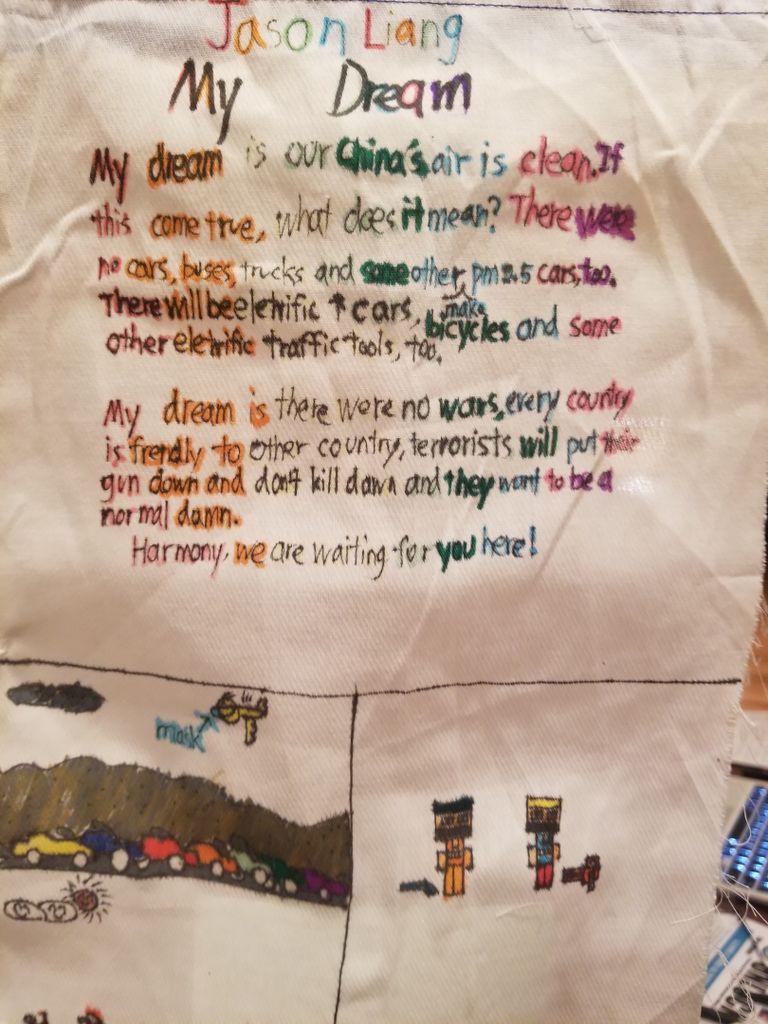 Jason Liang
My Dream
My dream is our China's air is clean. If
this come true, what does it mean? There were
no cars, buses, trucks and some other pm2.5 cars, too.
There will be eletrific cars, make bicycles and some
other eletrific traffic tools, too.
My dream is there were no wars, every country
is frendly to other country, terrorists will put their
gun down and don't kill dawn and they want to be a
normal damn.
Harmony, we are waiting for you here!
mask